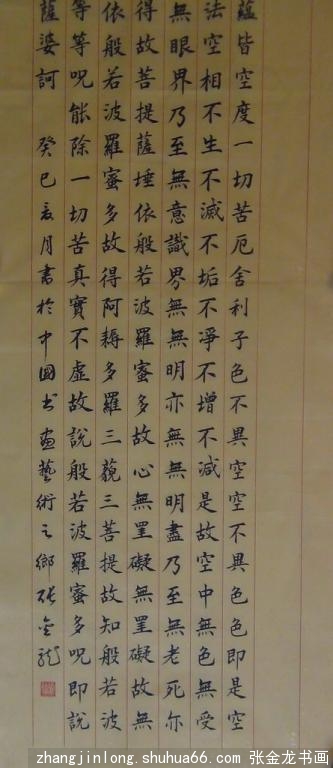 蘊皆空度一切苦厄舍利子色不異空空不異色色即是空
法空相不生不滅不垢不淨不增不減是故空中無色無受
無眼界乃至無意識界無無明亦無無明盡乃至無老死亦
得故菩提薩埵依般若波羅蜜多故心無罣礙無罣礙故無
依般若波羅蜜多故得阿耨多羅三藐三菩提故知般若波
等等呪能除一切苦真實不虛故說般若波羅蜜多呪即說
薩婆訶 癸巳夏月書於中國书畫藝術之鄉張金龍
zhangjinlong.shuhua66.com 张金龙书画